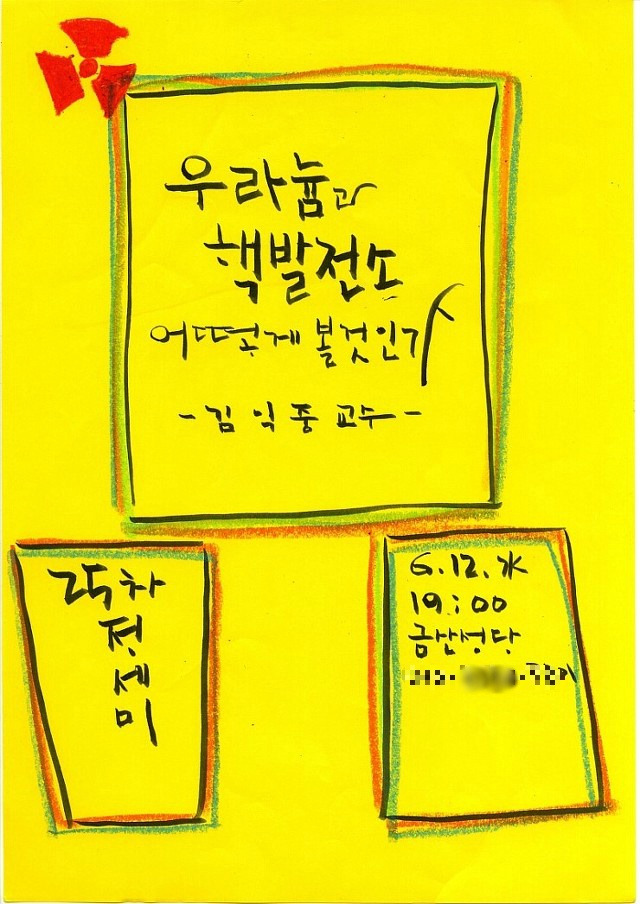 우라늄과
핵발전소
어떻게 볼것인가
- 김익중 교수 -
25차
정
세
미
6.12.水
19:00
금산성당